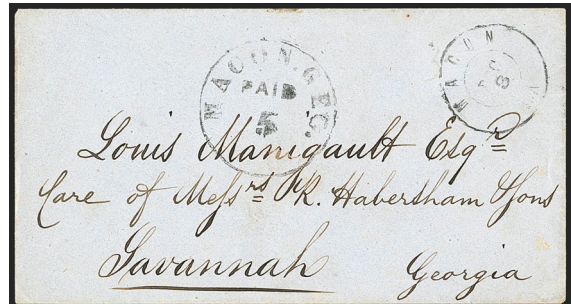 MACON. GEO.
PAID
5
MACON
8
Louis Manigault Esqr
Care of Messrs R. Habersham & Sons
Savannah
Georgia